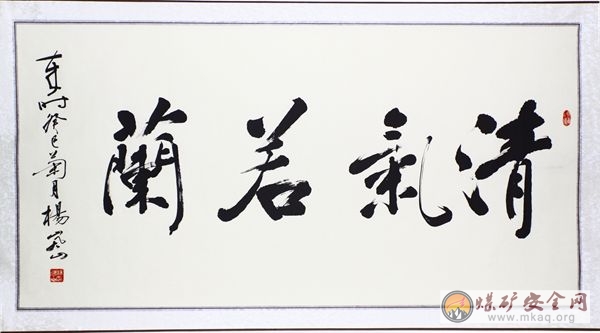 清氣若蘭
癸巳菊月楊
煤矿安全网
www.mkaq.org